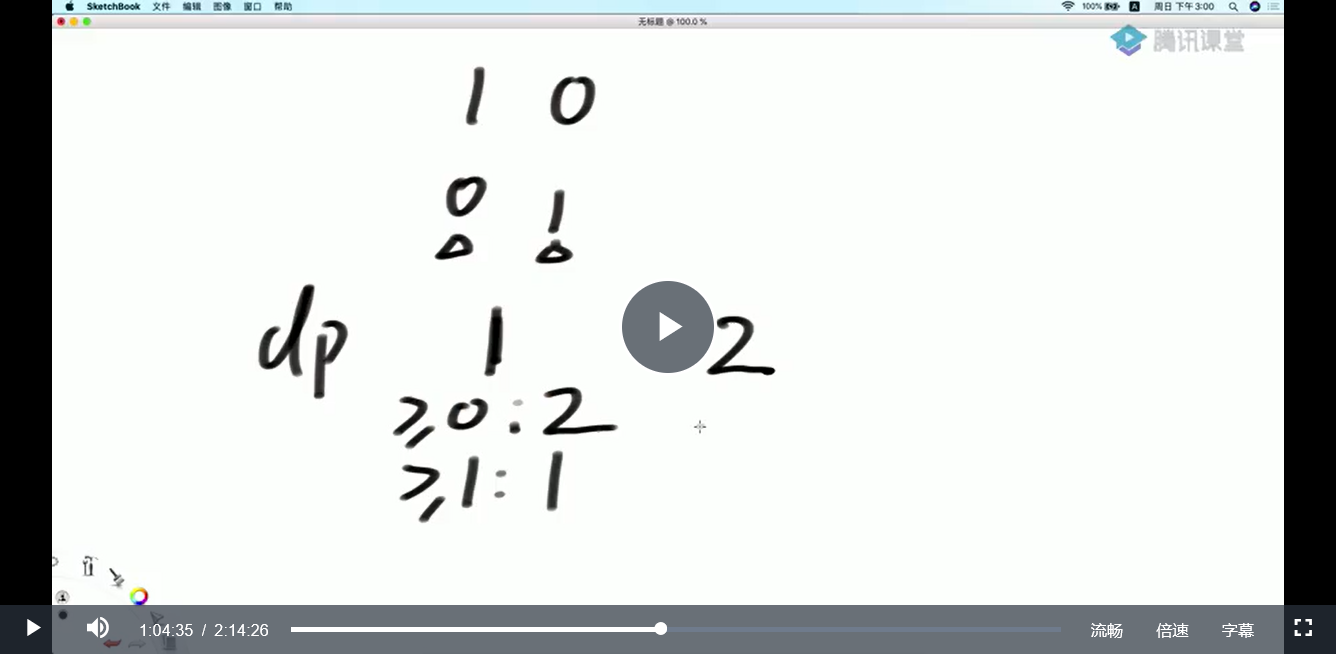 SketchBook 文件 编辑 图像 窗口 帮助 100% A 周日 下午3:00
无标题 @ 100.0 %
腾讯课堂
1 0
0 1
dp 1 2
≥0:2
≥1:1
1:04:35 / 2:14:26 流畅 倍速 字幕